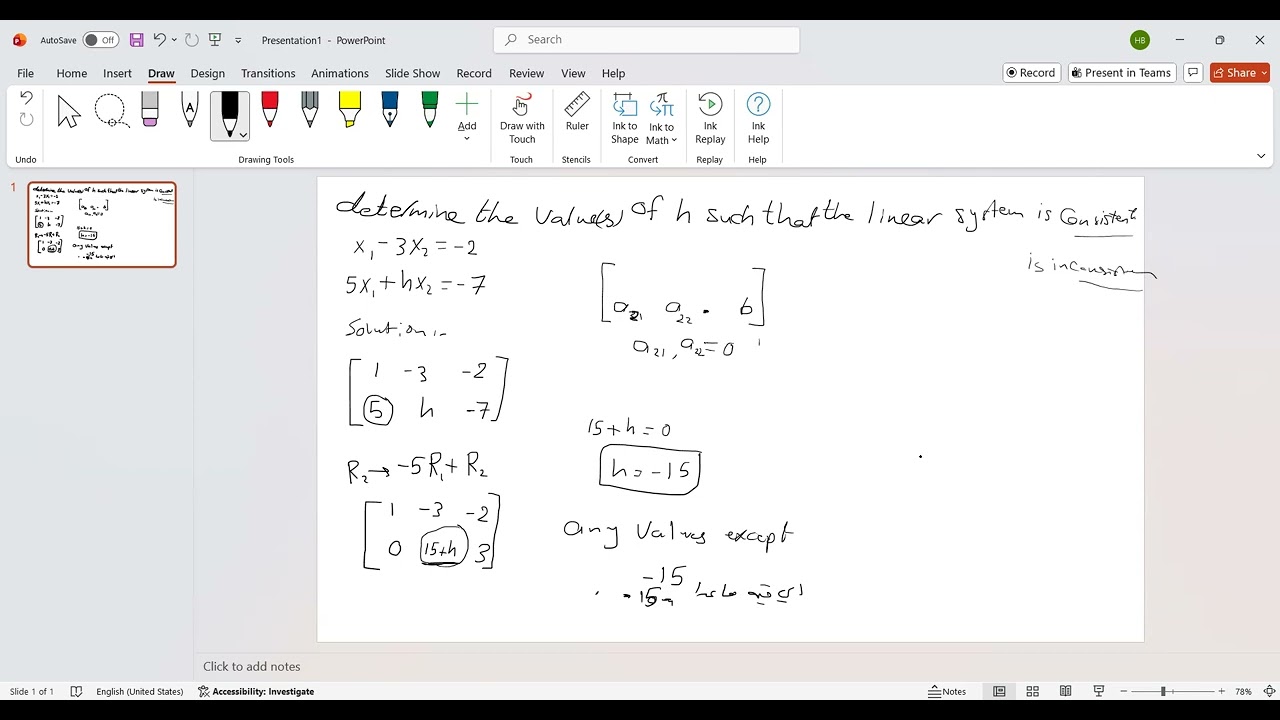 AutoSave Off Presentation1 - PowerPoint Search HB
File Home Insert Draw Design Transitions Animations Slide Show Record Review View Help Record Present in Teams Share
A
Add Draw with Touch Ruler Ink to Shape Ink to Math Ink Replay Ink Help
Undo Drawing Tools Touch Stencils Convert Replay Help
1
determine the value(s) of h such that the linear system is Consistent
is inconsistent
x₁ - 3x₂ = -2
5x₁ + hx₂ = -7
Solution:-
1 -3 -2
5 h -7
R₂ → -5R₁ + R₂
1 -3 -2
0 15+h 3
a₂₁ a₂₂ b
a₂₁, a₂₂ = 0
15 + h = 0
h = -15
any Values except
-15
اي قيمة ماعدا -15
Click to add notes
Slide 1 of 1 English (United States) Accessibility: Investigate Notes 78%